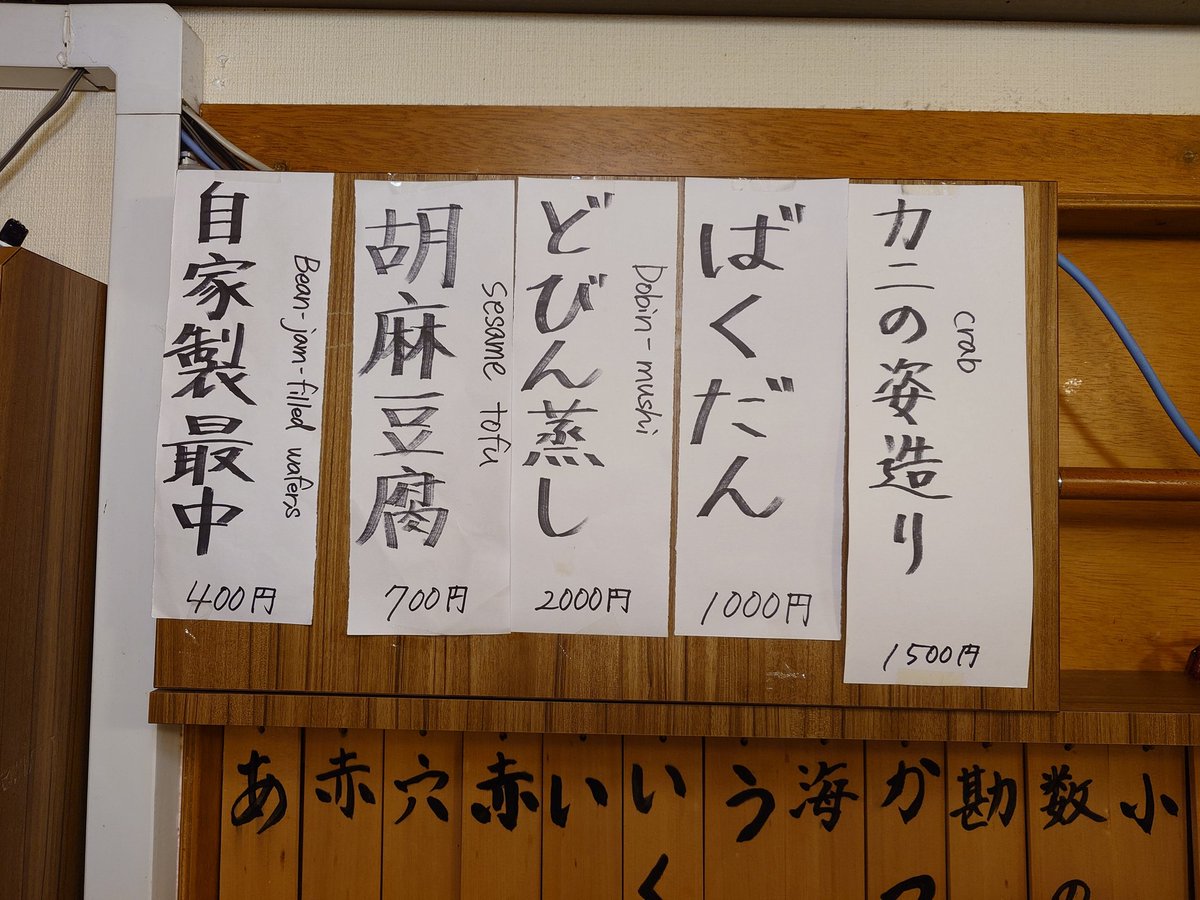 カニの姿造り
crab
1500円
ばくだん
1000円
どびん蒸し
Dobin-mushi
2000円
胡麻豆腐
sesame tofu
700円
自家製最中
Bean-jam-filled wafers
400円
あ
赤
穴
赤
い
いく
う
海
かつ
勘
数の
小